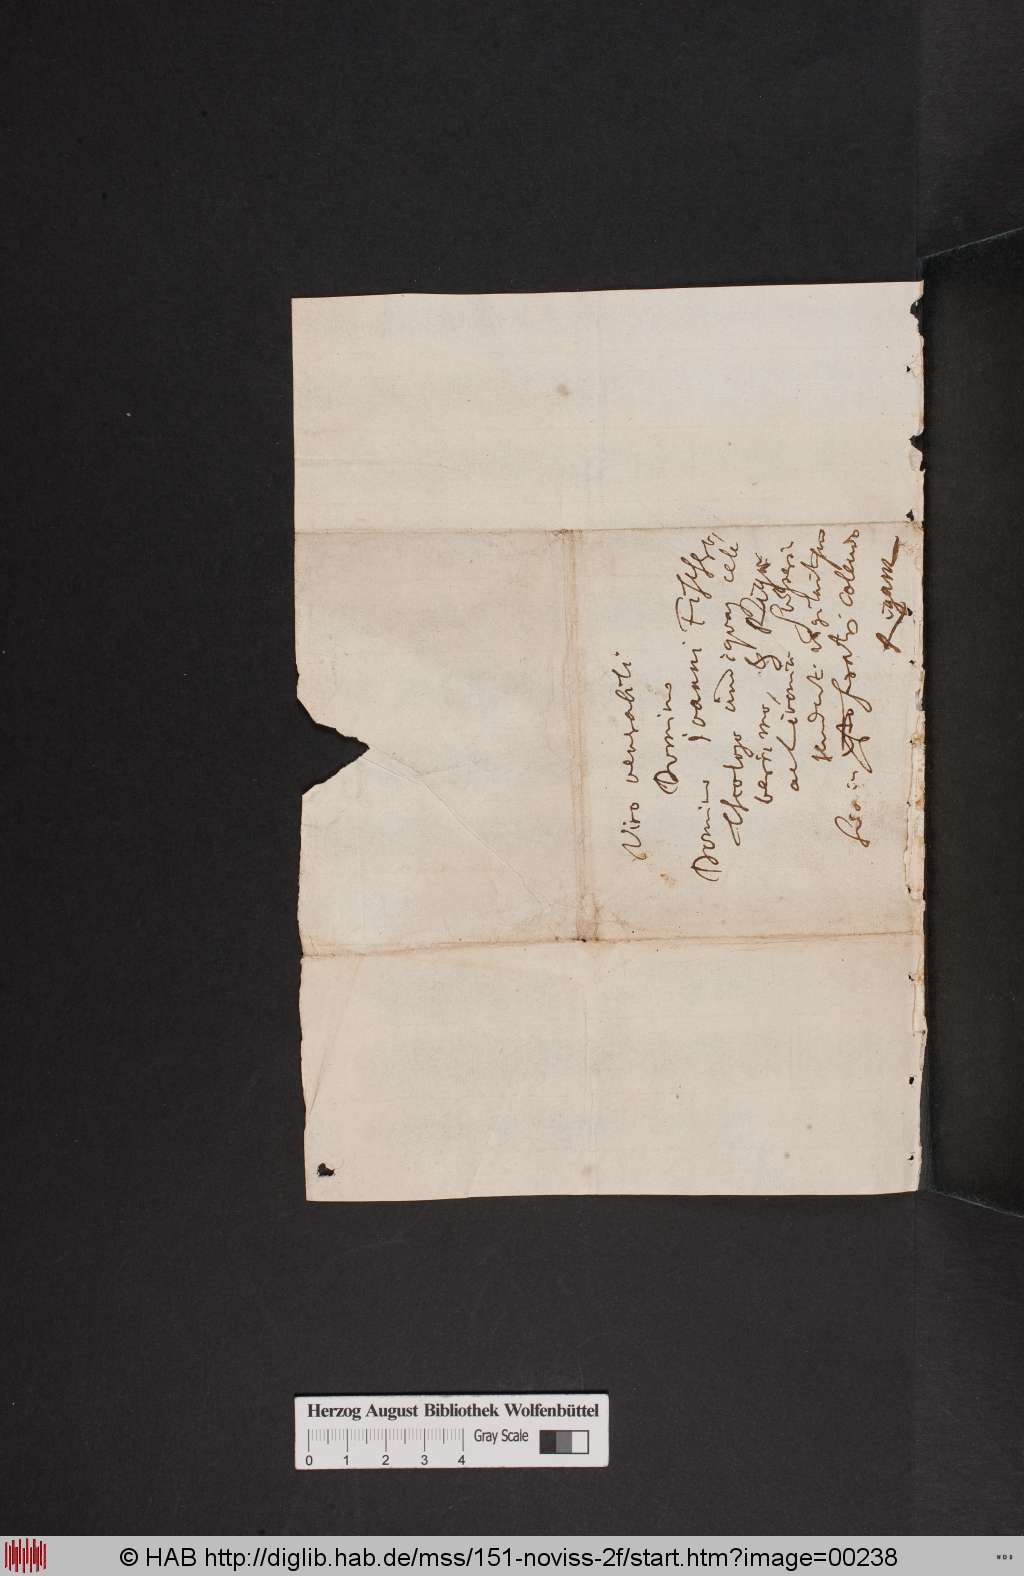 Viro venerabili
Domino
Domino Joanni Fischer,
Theologo undiquaq cele
berrimo, & Rigae
ac Livoniae Superin
tendenti vigilantissimo
colendo
Rigam
Herzog August Bibliothek Wolfenbüttel
Gray Scale
0 1 2 3 4
© HAB http://diglib.hab.de/mss/151-noviss-2f/start.htm?image=00238